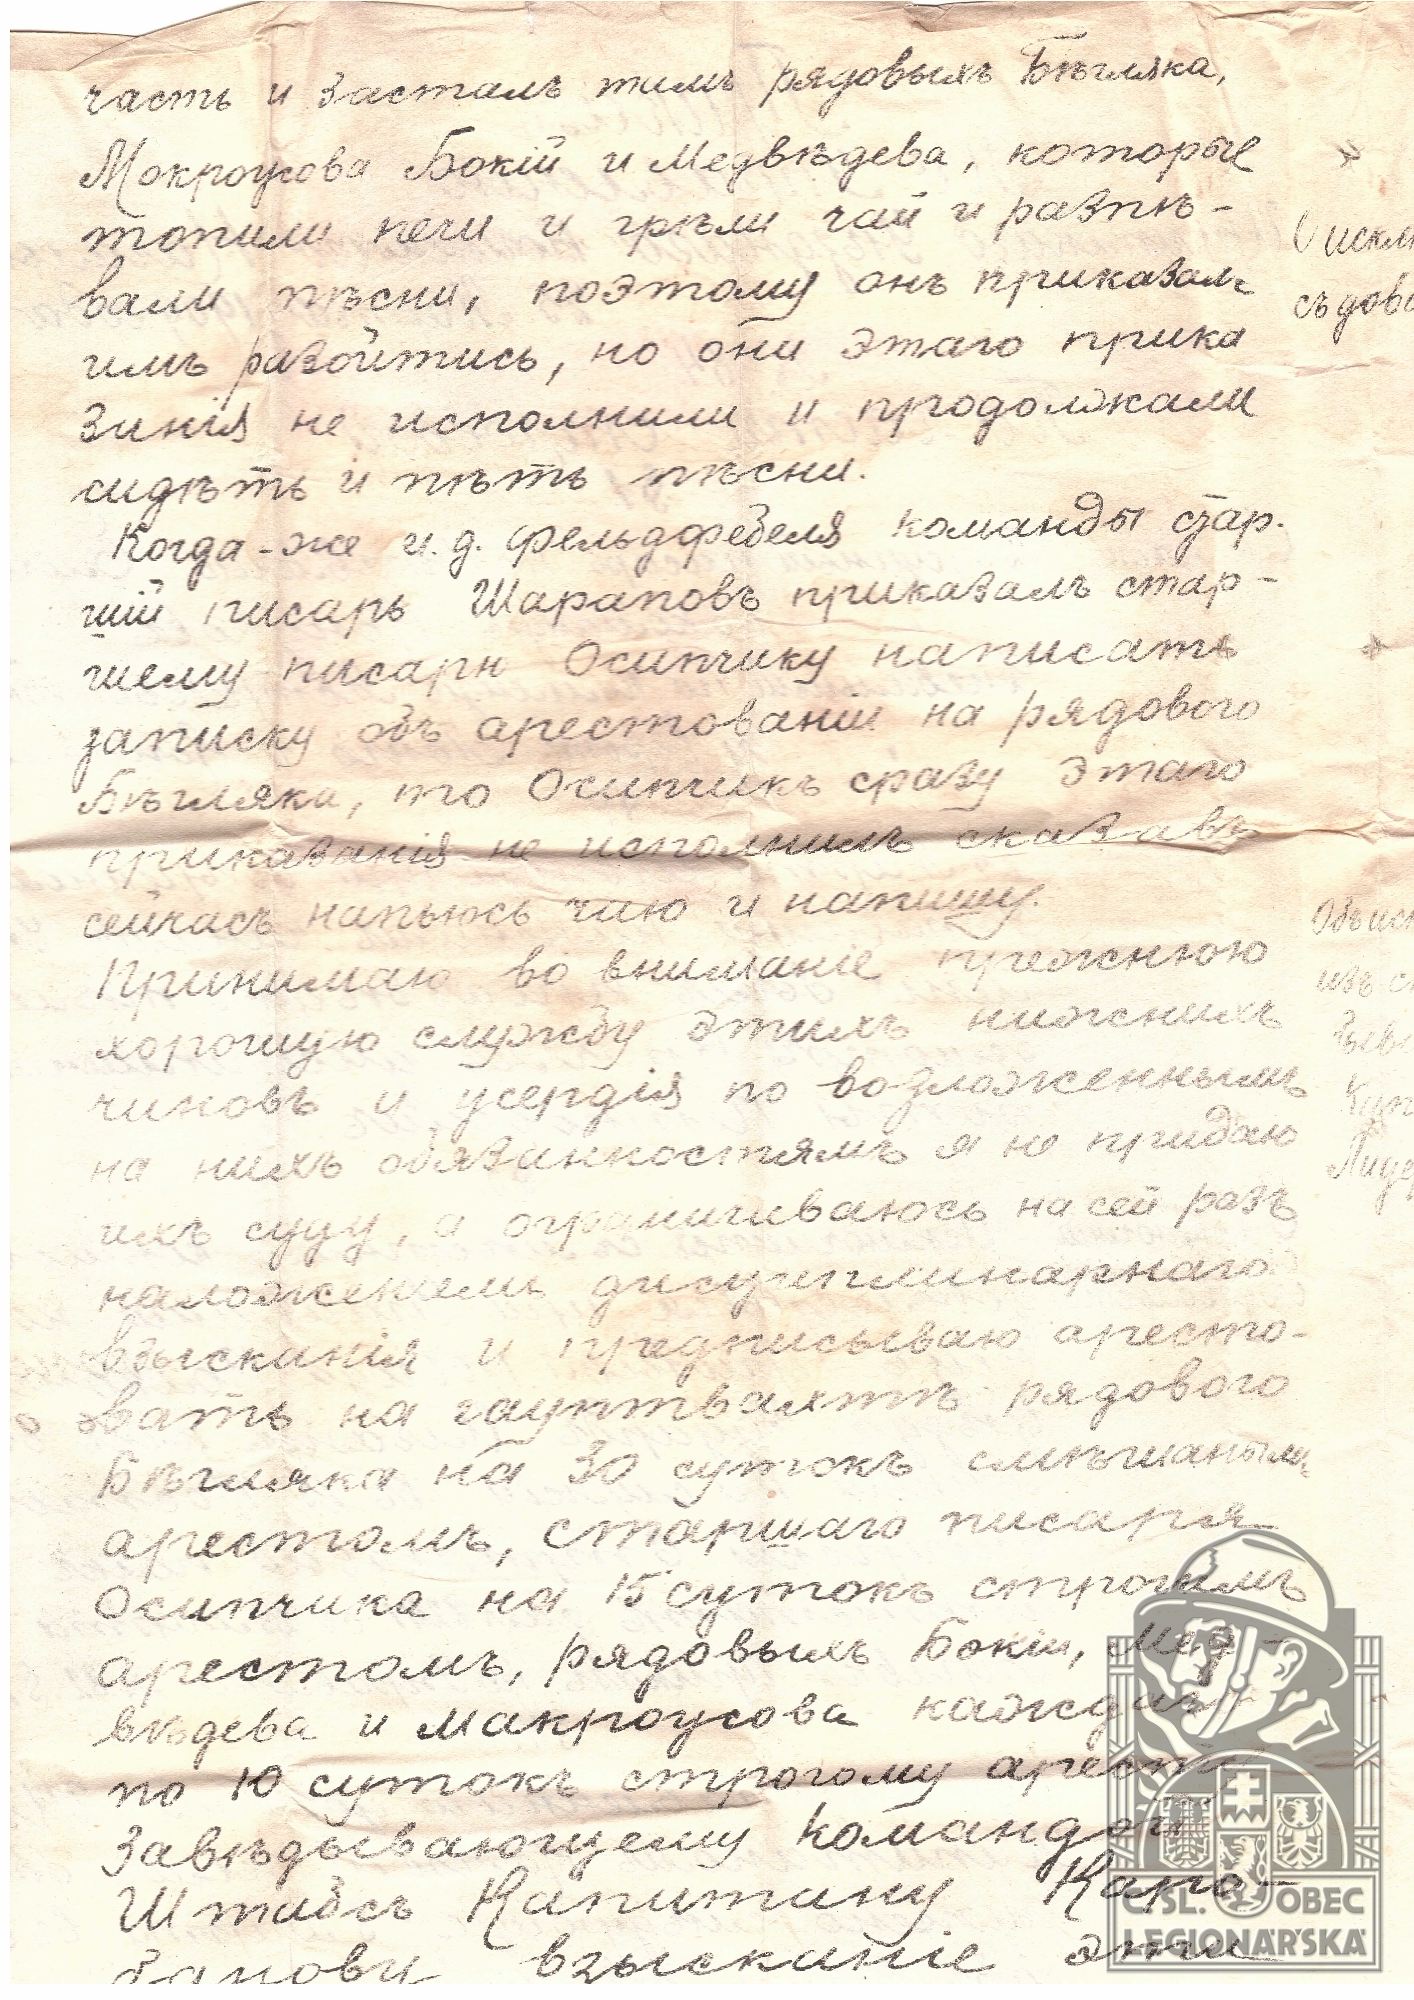 часть и засталъ тамъ рядовыхъ Бѣгляка,
Мокроусова Бокій и Медвѣдева, которые
топили печи и грѣли чай и распѣ-
вали пѣсни, поэтому онъ приказалъ
имъ разойтись, но они этаго прика
занія не исполнили и продолжали
сидѣть и пѣть пѣсни.
Когда-же и.д. фельдфебеля команды стар-
шій писарь Шараповъ приказалъ стар-
шему писарю Осипчику написать
записку объ арестованіи на рядового
Бѣгляка, то Осипчикъ сразу этаго
приказанія не исполнилъ сказавъ
сейчасъ напьюсь чаю и напишу.
Принимаю во вниманіе прежнюю
хорошую службу этихъ нижнихъ
чиновъ и усердія по возложеннымъ
на нихъ обязанностямъ я не придаю
ихъ суду, а ограничиваюсь на сей разъ
наложеніемъ дисциплинарнаго
взысканія и предписываю аресто-
вать на гауптвахтѣ рядового
Бѣгляка на 30 сутокъ смѣшанымъ
арестомъ, старшаго писаря
Осипчика на 15 сутокъ строгимъ
арестомъ, рядовымъ Бокій, Мед-
вѣдева и Макроусова каждаго
по 10 сутокъ строгому аресту
Завѣдывающему командой
Штабсъ Капитану Кара-
банову взысканіе эти
исклю
съ дов
Объ иск
изъ сп
Куп
Лидер
ČSL. OBEC
LEGIONÁŘSKÁ